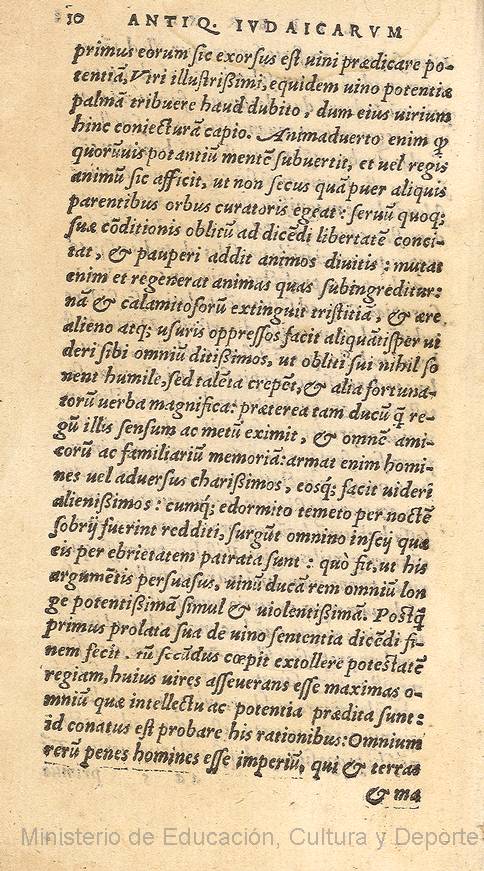 10 ANTIQ. IVDAICARVM
primus eorum sic exorsus est uini prædicare po-
tentiã, Viri illustrißimi, equidem uino potentiæ
palmã tribuere haud dubito, dum eius uirium
hinc coniecturã capio. Animaduerto enim ꝙ
quorũuis potantiũ mentẽ subuertit, et uel regis
animũ sic afficit, ut non secus quã puer aliquis
parentibus orbus curatoris egeat: seruũ quoq;
suæ cõditionis oblitũ ad dicẽdi libertatẽ conci-
tat, & pauperi addit animos diuitis: mutat
enim et regenerat animas quas subingreditur:
nã & calamitosorũ extinguit tristitiã, & ære
alieno atq; usuris oppressos facit aliquãtisper ui
deri sibi omniũ ditißimos, ut obliti sui nihil so
nent humile, sed talẽta crepẽt, & alia fortuna-
torũ uerba magnifica: præterea tam ducũ q̃ re-
gũ illis sensum ac metũ eximit, & omnẽ ami-
corũ ac familiariũ memoriã: armat enim homi-
nes uel aduersus charißimos, eosq; facit uideri
alienißimos: cumq; edormito temeto per noctẽ
sobrij fuerint redditi, surgũt omnino inscij quæ
eis per ebrietatem patrata sunt: quò fit, ut his
argumẽtis persuasus, uinũ ducã rem omniũ lon
ge potentißimã simul & uiolentißimã. Postq̃
primus prolata sua de uino sententia dicẽdi fi-
nem fecit, tũ secũdus cœpit extollere potestatẽ
regiam, huius uires asseuerans esse maximas o-
mniũ quæ intellectu ac potentia prædita sunt:
id conatus est probare his rationibus: Omnium
rerũ penes homines esse imperiũ, qui & terras
& ma
Ministerio de Educación, Cultura y Deporte